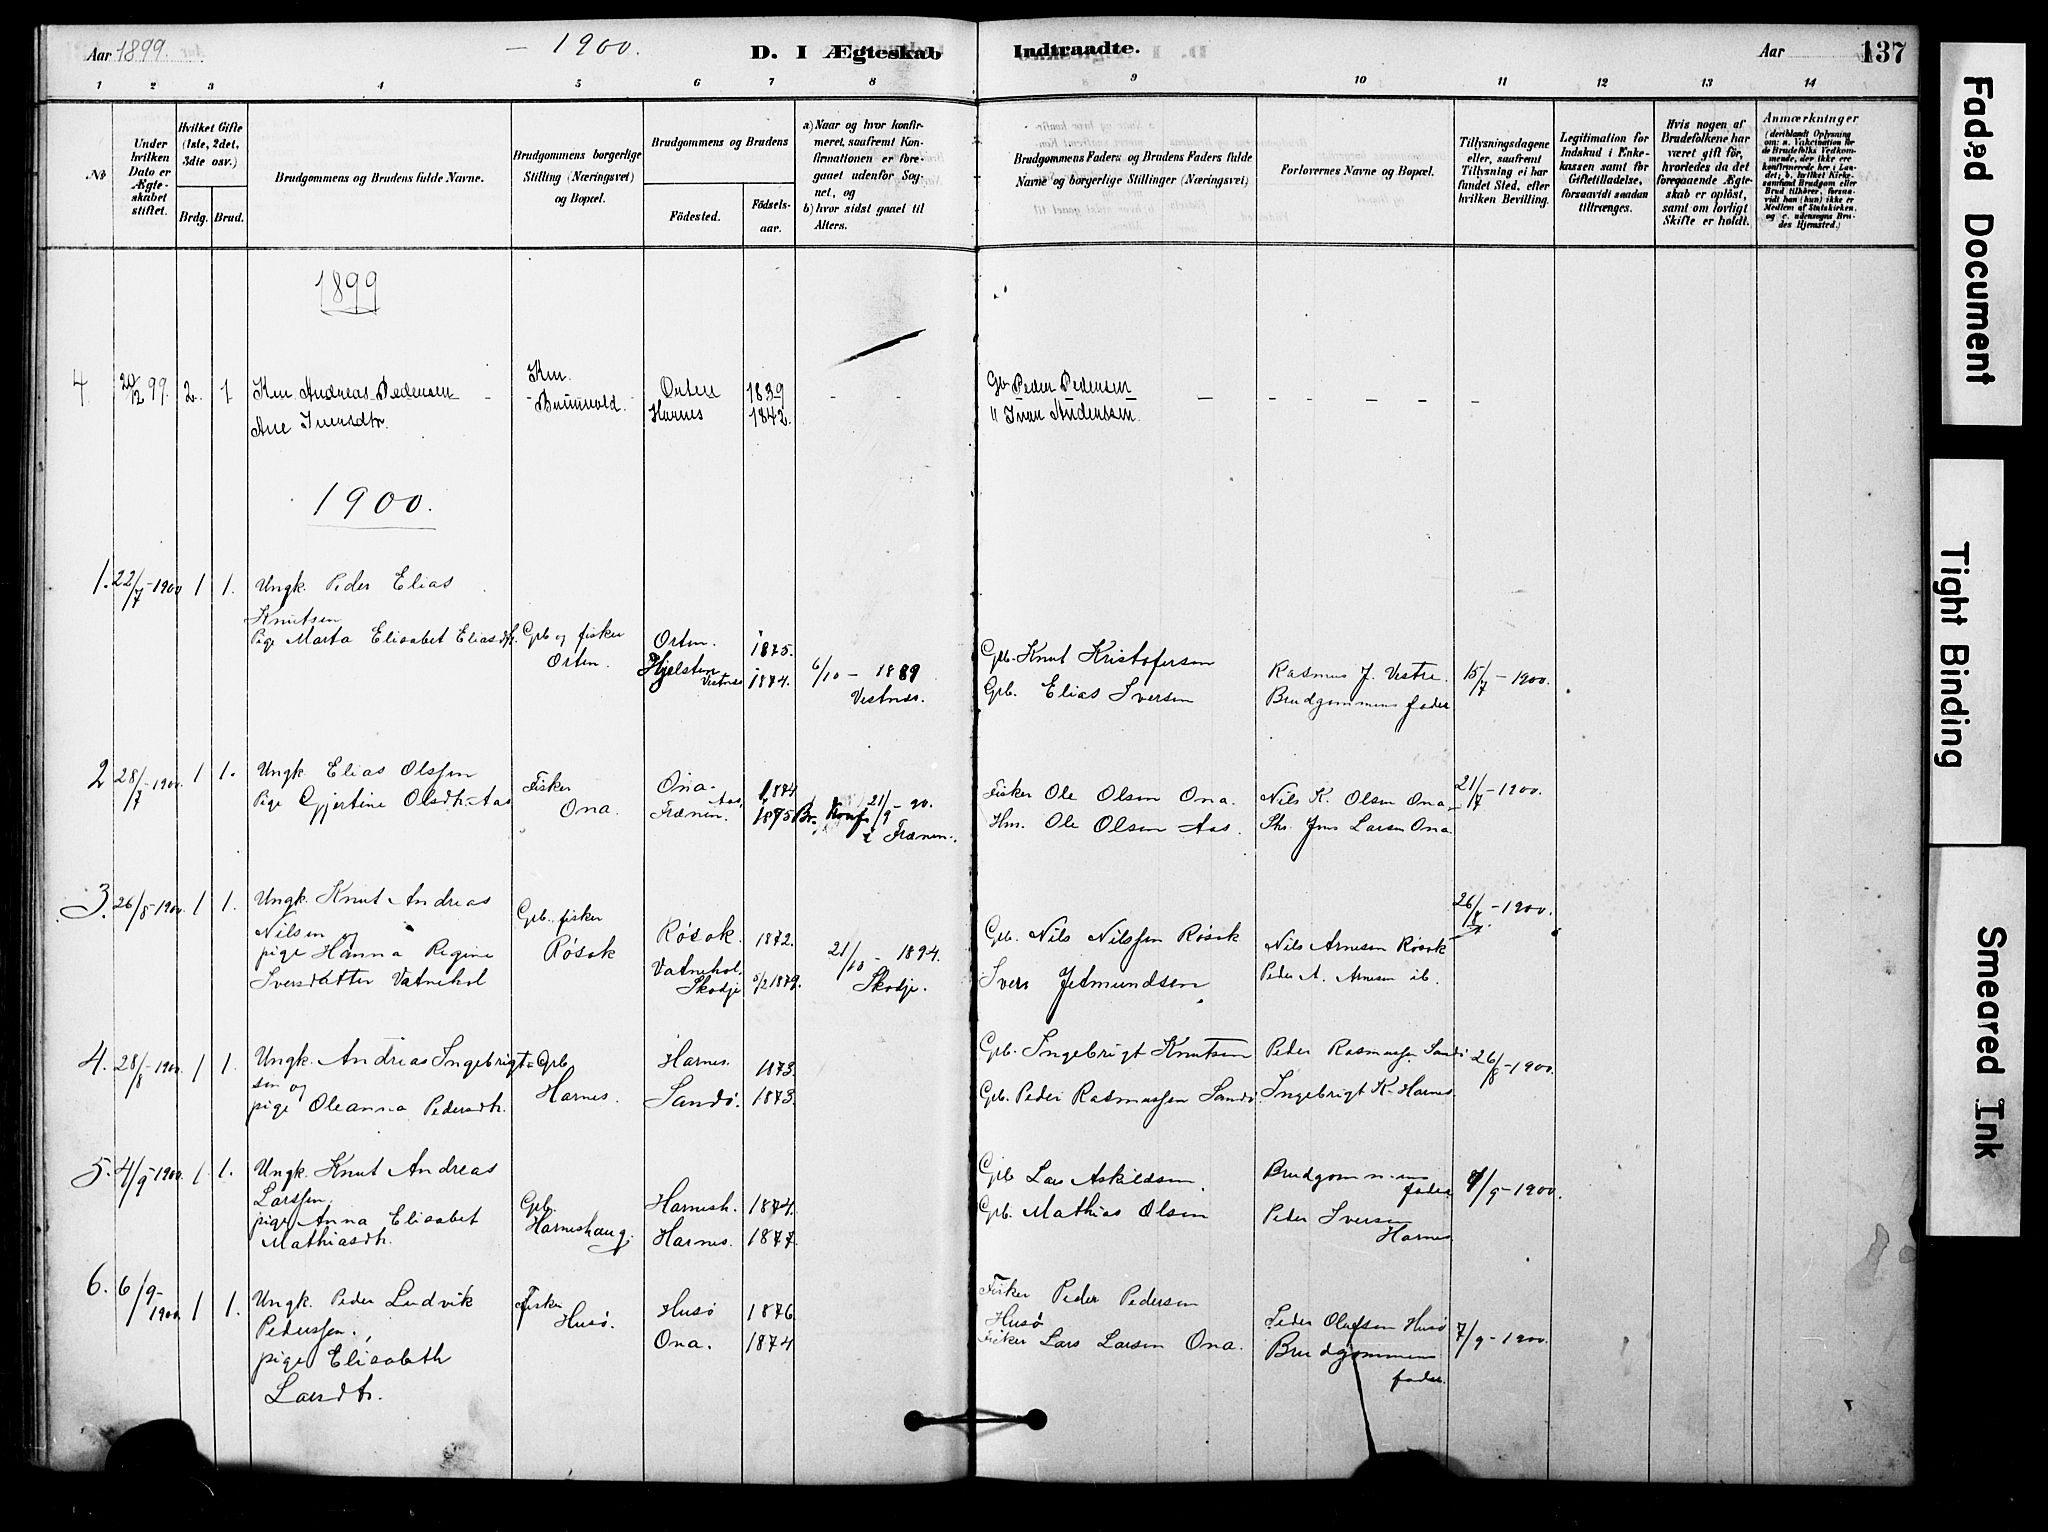 Aar 1899. - 1900. D. I Ægteskab Indtraadte. Aar 137
1 2 3 4 5 6 7 8 9 10 11 12 13 14
No
Under hvilken Dato er Ægteskabet stiftet.
Hvilket Gifte (1ste, 2det, 3die osv.)
Brdg. Brud.
Brudgommens og Brudens fulde Navne.
Brudgommens borgerlige Stilling (Næringsvei) og Bopæl.
Brudgommens og Brudens
Födested. Födsels-aar.
a) Naar og hvor konfirmeret, saafremt Konfirmationen er foregaaet udenfor Sognet, og
b) hvor sidst gaaet til Alters.
Brudgommens Faders og Brudens Faders fulde Navne og borgerlige Stillinger (Næringsvei)
Forlovernes Navne og Bopæl.
Tillysningsdagene eller, saafremt Tillysning ei har fundet Sted, efter hvilken Bevilling.
Legitimation for Indskud i Enkekassen samt for Giftetilladelse, forsaavidt saadan tiltrænges.
Hvis nogen af Brudefolkene har været gift för, hvorledes da det foregaaende Ægteskab er oplöst, samt om lovligt Skifte er holdt.
Anmærkninger
(deriblandt Oplysning om: a. Vakcination for de Brudefolks Vedkommende, der ikke ere konfirmerede her i Landet; b. hvilket Kirkesamfund Brudgom eller Brud tilhörer, forsaavidt han (hun) ikke er Medlem af Statskirken, og c. udensogns Brudes Hjemsted.)
1899
4 20/12 99. 2. 1 Km. Andreas Pedersen - Km. Orten 1839 - - Gb Peder Pedersen - - - - - -
Ane Iversdtr. Harnes 1842. " Iver Anderssen.
1900.
1. 22/7-1900 1 1. Ungk. Peder Elias
Knutsen
Pige Marta Elisabet Eliasdtr. Grb og fisker Orten. 1875. Grb. Knut Kristofersen
Orten. Hjelsten Vestnes 1874. 6/10 - 1889 Vestnes. Grb. Elias Iversen
Rasmus J. Vestre. 15/7 - 1900.
Brudgommens fader
2 28/7-1900. 1 1. Ungk. Elias Olssen Fisker Ona. 1874 Fisker Ole Olsen Ona. Nils K. Olsen Ona 21/7 - 1900.
Pige Gjertine Olsdtr. Aas Ona. Aas, Frænen. 1875 Br. Konf. 21/9 - 90. i Frænen. Hm. Ole Olsen Aas. Jens Larsen Ona
3. 26/8-1900 1 1. Ungk. Knut Andreas Grb. fisker 26/8 - 1900.
Nilsen og Røsok Røsok. 1872. Grb. Nils Nilssen Røsok Nils Arnesen Røsok
pige Hanna Regine Vatnehol, Skodje 5/2 1879. 21/10 - 1894. Skodje. Iver Jetmundsen Peder A. Arnesen ib.
Iversdatter Vatnehol
4. 28/8-1900 1 1. Ungk. Andreas Ingebrigt= Grb. Harnes. 1873. Grb. Ingebrigt Knutsen Peder Rasmussen Sandø 26/8-1900.
sen og Harnes.
pige Oleanna Pedersdtr. Sandø. 1873. Grb. Peder Rasmussen Sandø. Ingebrigt K. Harnes
5. 4/9-1900 1. 1. Ungk. Knut Andreas Grb Lars Askildsen. Brudgommens fader /9-1900.
Larssen. Grb. Harneshaug. Harnesh. 1874.
pige Anna Elisabet Harnes. 1877. Grb. Mathias Olsen Peder Iversen Harnes
Mathiasdtr.
6. 6/9-1900 1 1. Ungk. Peder Ludvik Fisker Husø. Husø 1876 Fisker Peder Pedersen Husø Peder Olufsen Husø 7/9-1900.
Pederssen.
pige Elisabeth Ona. 1874 Fisker Lars Larsen Ona. Brudgommens fader.
Larsdtr.
Faded Document
Tight Binding
Smeared Ink